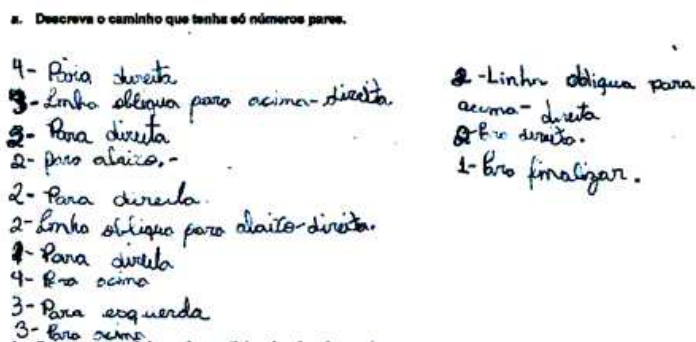 a. Descreva o caminho que tenha só números pares.
4- Para direita
3- Linha obliqua para acima-direita.
2- Para direita
2- para abaixo.-
2- Para direita.
2- Linha obliqua para abaixo-direita.
1- Para direita
4- Pra acima
3- Para esquerda
3- Para acima
2-Linha obliqua para
acima-direita
2- Pra direita.
1- Pra finalizar.